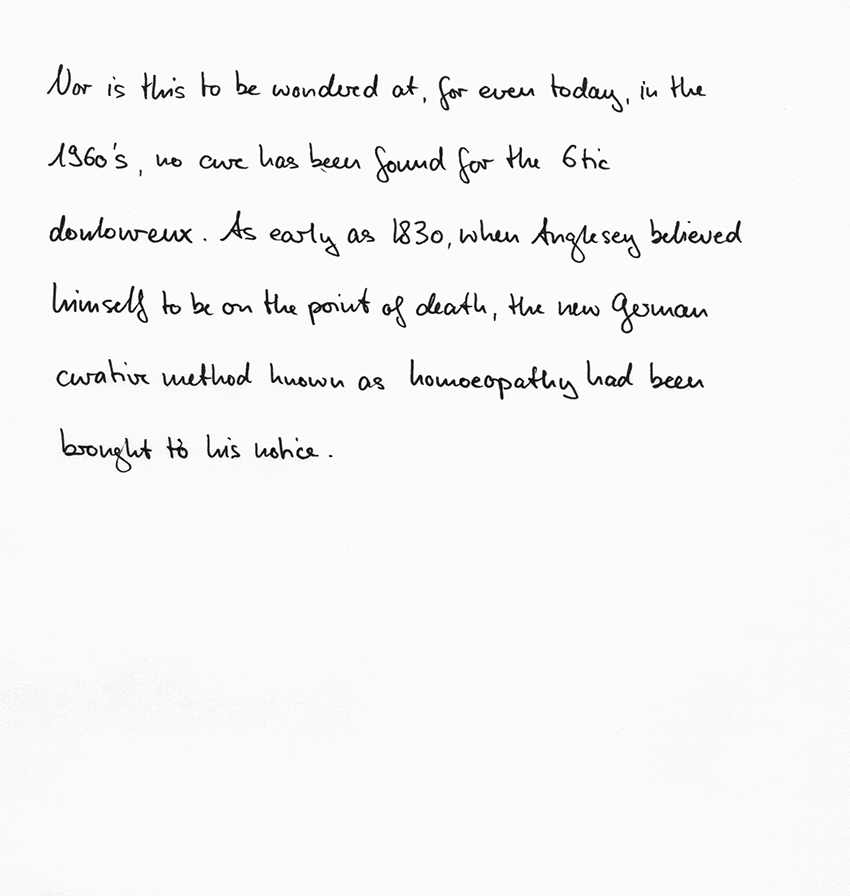 Nor is this to be wondered at, for even today, in the
1960's, no cure has been found for the 6tic
douloureux. As early as 1830, when Anglesey believed
himself to be on the point of death, the new German
curative method known as homoeopathy had been
brought to his notice.